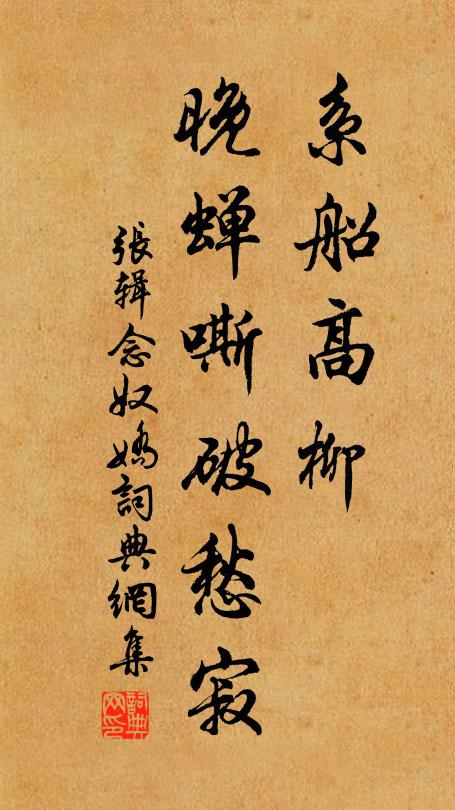 系船高柳
晚蝉嘶破愁寂
張辑念奴嬌詞典網集
詞典
网印